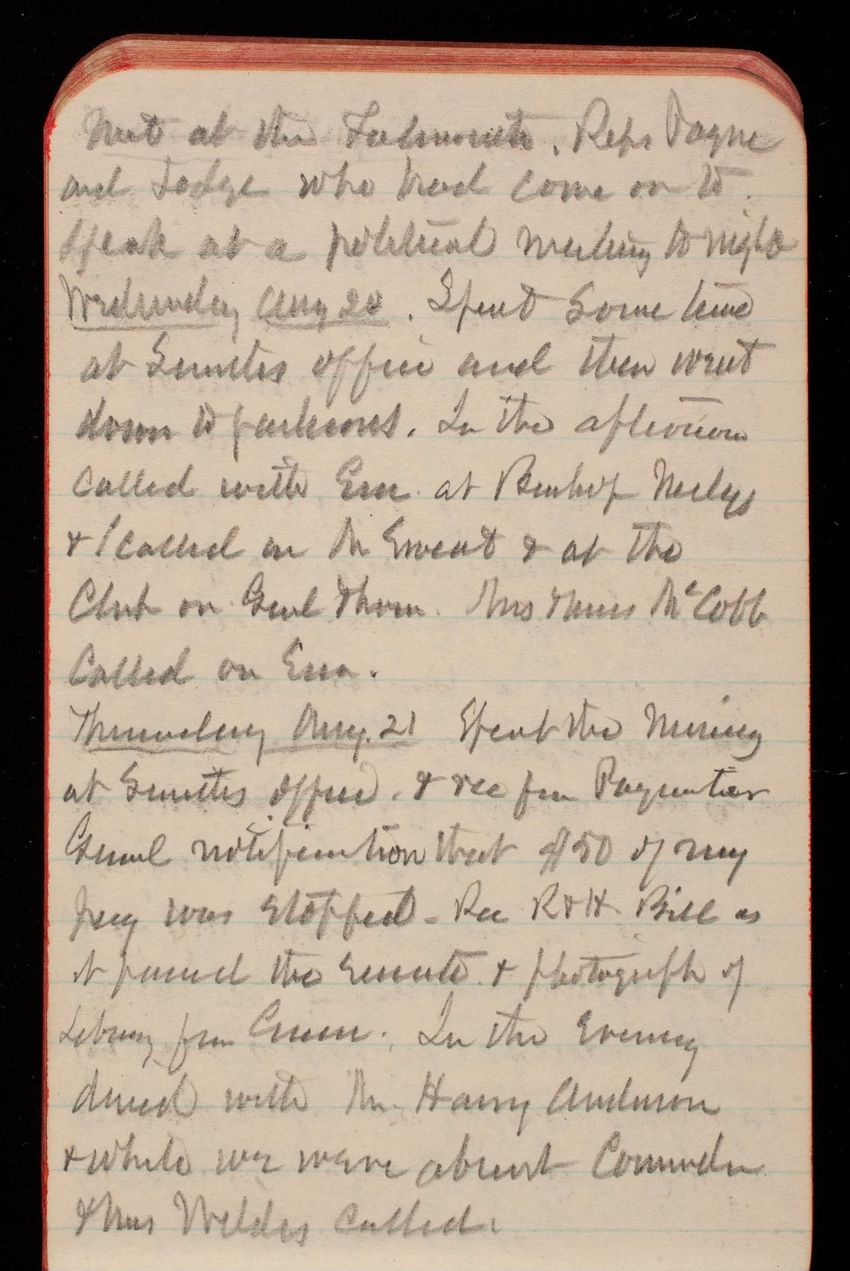 Met at the Falmouth. Reps Payne
and Lodge who had come on to
speak at a political meeting to night
Wednesday Aug 20. Spent some time
at Smiths office and then went
down to In the afternoon
called with Em at Bishop Neelys
& I called on Mr Sweat & at the
Club on Genl Thom. Mrs & Miss McCobb
called on Em.
Thursday Aug. 21 Spent the morning
at Smiths office. & rec from Paymaster
Genl notification that $50 of my
pay was stopped - Rec R & H Bill as
it passed the Senate & photograph of
Library from Green. In the Evening
dined with Mr Harry Anderson
& while we were absent Commander
& Mrs Wildes called.